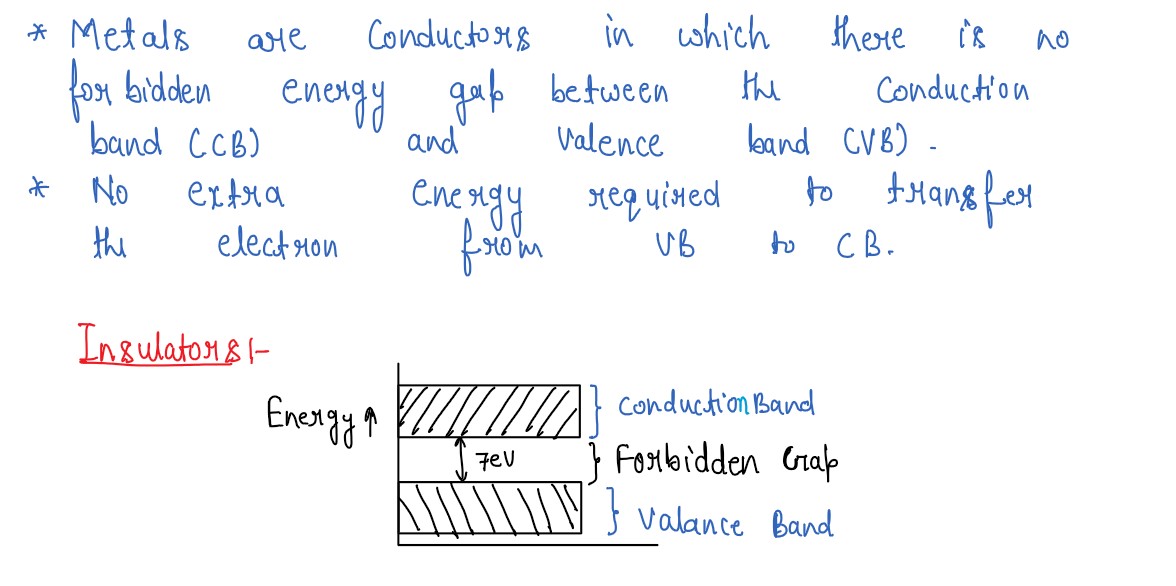 * Metals are Conductors in which there is no
forbidden energy gap between the Conduction
band (CB) and Valence band (VB).
* No extra energy required to transfer
the electron from VB to CB.
Insulators:-
Energy ↑
Conduction Band
7eV
Forbidden Gap
Valance Band